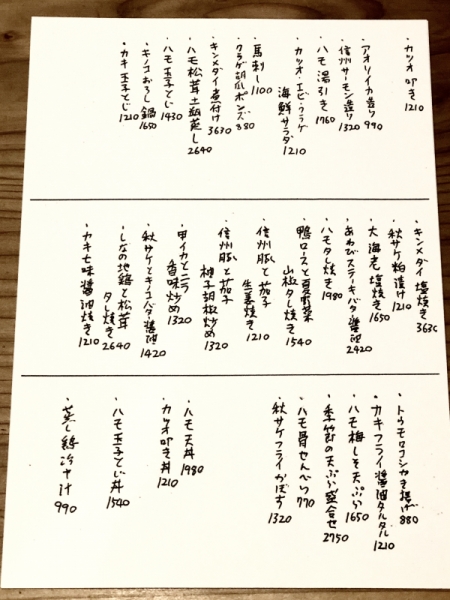 ・カツオ叩き 1210
・アオリイカ造り 990
・信州サーモン造り 1320
・ハモ湯引き 1760
・カツオ・エビ・クラゲ
海鮮サラダ 1210
・馬刺し 1100
・クラゲ胡瓜ポンズ 880
・キンメダイ煮付け 3630
・ハモ松茸土瓶蒸し 2640
・ハモ玉子とじ 1430
・キノコおろし鍋 1650
・カキ玉子とじ 1210
・キンメダイ塩焼き 3630
・秋サケ粕漬け 1210
・大海老塩焼き 1650
・あわびステーキバタ醤油 2420
・ハモタレ焼き 1980
・鴨ロースと夏野菜
山椒タレ焼き 1540
・信州豚と茄子
生姜焼き 1210
・信州豚と茄子
柚子胡椒炒め 1320
・甲イカとニラ
香味炒め 1320
・秋サケとキノコバタ醤油 1420
・しなの地鶏と松茸
タレ焼き 2640
・カキ七味醤油焼き 1210
・トウモロコシかき揚げ 880
・カキフライ醤油タルタル 1210
・ハモ梅しそ天ぷら 1650
・季節の天ぷら盛合せ 2750
・ハモ骨せんべい 770
・秋サケフライかぼす 1320
・ハモ天丼 1980
・カツオ叩き丼 1210
・ハモ玉子とじ丼 1540
・蒸し鶏冷や汁 990